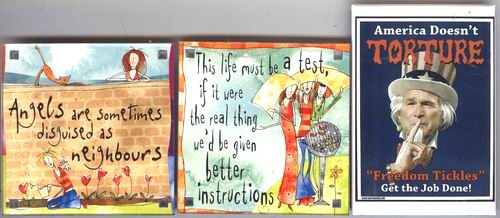 Angels are sometimes
disguised as
neighbours
This life must be a test,
if it were
the real thing
we'd be given
better
instructions
America Doesn't
TORTURE
"Freedom Tickles"
Get the Job Done!